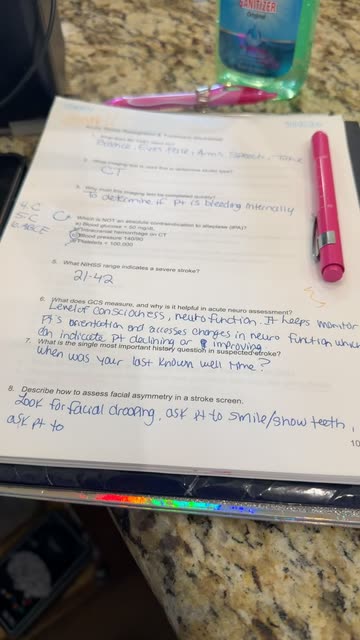 SANITIZER
Original
Acute Stroke Recognition & Treatment Worksheet
1. What does BE FAST stand for?
Balance, Eyes, Face, Arms, Speech, Time
2. What imaging test is used first to determine stroke type?
CT
3. Why must this imaging be completed quickly?
To determine if pt is bleeding internally
4. Which is NOT an absolute contraindication to alteplase (tPA)?
a) Blood glucose < 50 mg/dL
b) Intracranial hemorrhage on CT
c) Blood pressure 140/90
d) Platelets < 100,000
4. C
5. C
C
5. What NIHSS range indicates a severe stroke?
21-42
6. What does GCS measure, and why is it helpful in acute neuro assessment?
Level of consciousness, neuro function. It helps monitor
pt's orientation and accesses changes in neuro function which
can indicate pt declining or improving
7. What is the single most important history question in suspected stroke?
when was your last known well time?
8. Describe how to assess facial asymmetry in a stroke screen.
Look for facial drooping, ask pt to smile/show teeth,
ask pt to
10